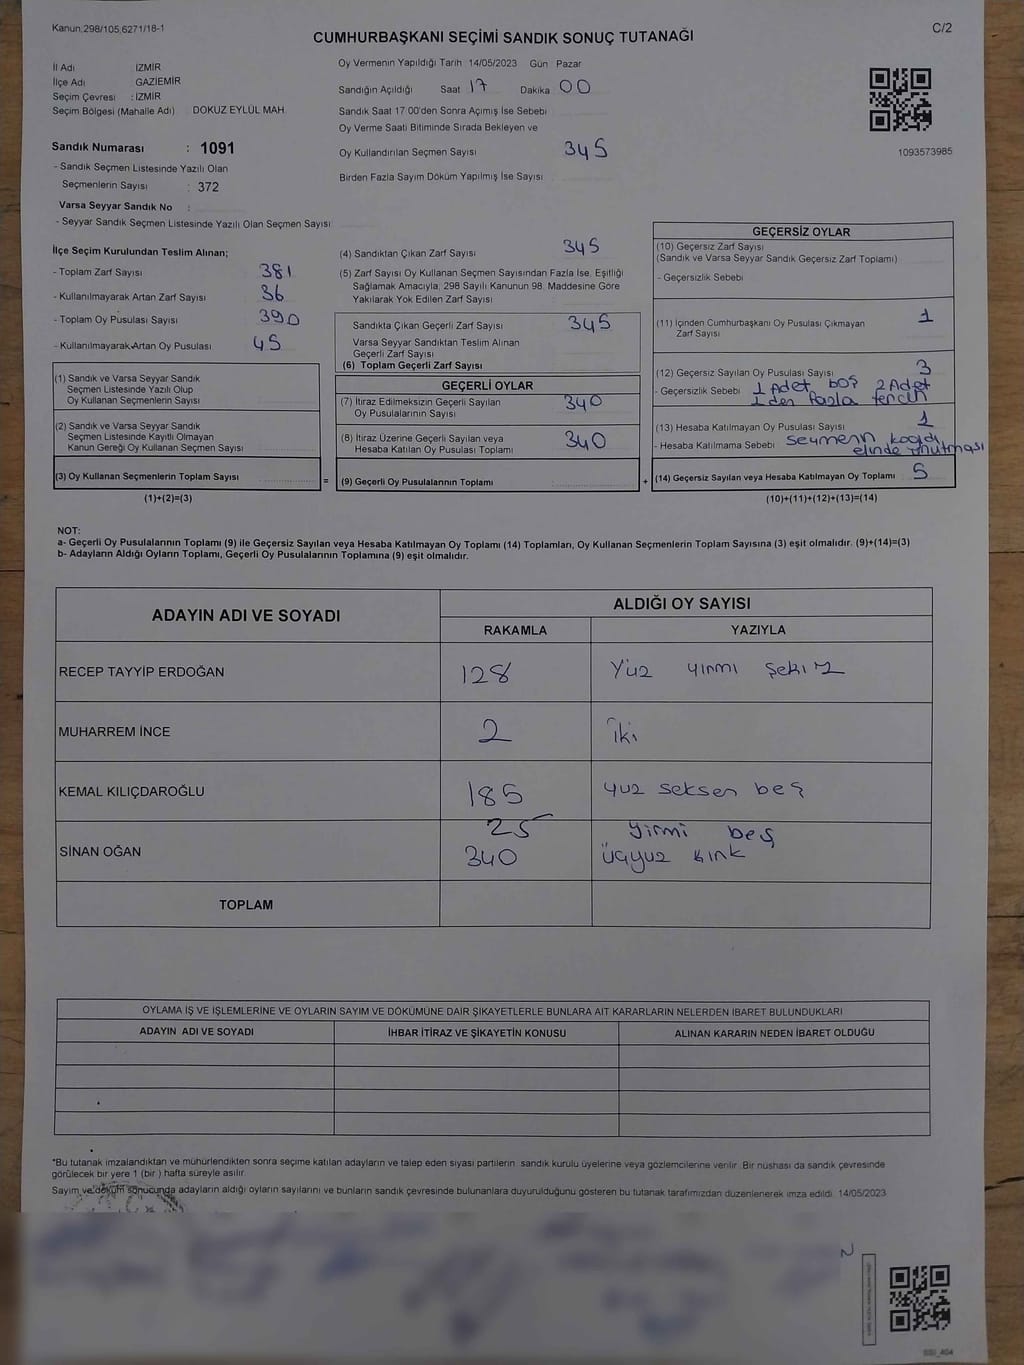 Kanun 298/105,6271/18-1
C/2
CUMHURBAŞKANI SEÇİMİ SANDIK SONUÇ TUTANAĞI
İl Adı : İZMİR
İlçe Adı : GAZİEMİR
Seçim Çevresi : İZMİR
Seçim Bölgesi (Mahalle Adı) : DOKUZ EYLÜL MAH.
Sandık Numarası : 1091
- Sandık Seçmen Listesinde Yazılı Olan
Seçmenlerin Sayısı : 372
Varsa Seyyar Sandık No :
- Seyyar Sandık Seçmen Listesinde Yazılı Olan Seçmen Sayısı
Oy Vermenin Yapıldığı Tarih 14/05/2023 Gün Pazar
Sandığın Açıldığı Saat 17 Dakika 00
Sandık Saat 17:00'den Sonra Açımış İse Sebebi
Oy Verme Saati Bitiminde Sırada Bekleyen ve
Oy Kullandırılan Seçmen Sayısı 345
Birden Fazla Sayım Döküm Yapılmış İse Sayısı
1093573985
İlçe Seçim Kurulundan Teslim Alınan;
- Toplam Zarf Sayısı 381
- Kullanılmayarak Artan Zarf Sayısı 36
- Toplam Oy Pusulası Sayısı 390
- Kullanılmayarak Artan Oy Pusulası 45
(1) Sandık ve Varsa Seyyar Sandık
Seçmen Listesinde Yazılı Olup
Oy Kullanan Seçmenlerin Sayısı
(2) Sandık ve Varsa Seyyar Sandık
Seçmen Listesinde Kayıtlı Olmayan
Kanun Gereği Oy Kullanan Seçmen Sayısı
(3) Oy Kullanan Seçmenlerin Toplam Sayısı =
(1)+(2)=(3)
(4) Sandıktan Çıkan Zarf Sayısı 345
(5) Zarf Sayısı Oy Kullanan Seçmen Sayısından Fazla İse, Eşitliği
Sağlamak Amacıyla; 298 Sayılı Kanunun 98. Maddesine Göre
Yakılarak Yok Edilen Zarf Sayısı
Sandıkta Çıkan Geçerli Zarf Sayısı 345
Varsa Seyyar Sandıktan Teslim Alınan
Geçerli Zarf Sayısı
(6) Toplam Geçerli Zarf Sayısı
GEÇERLİ OYLAR
(7) İtiraz Edilmeksizin Geçerli Sayılan 340
Oy Pusulalarının Sayısı
(8) İtiraz Üzerine Geçerli Sayılan veya 340
Hesaba Katılan Oy Pusulası Toplamı
(9) Geçerli Oy Pusulalarının Toplamı +
GEÇERSİZ OYLAR
(10) Geçersiz Zarf Sayısı
(Sandık ve Varsa Seyyar Sandık Geçersiz Zarf Toplamı)
- Geçersizlik Sebebi
(11) İçinden Cumhurbaşkanı Oy Pusulası Çıkmayan 1
Zarf Sayısı
(12) Geçersiz Sayılan Oy Pusulası Sayısı 3
- Geçersizlik Sebebi 1 Adet boş 2 Adet
1 den fazla tercih
(13) Hesaba Katılmayan Oy Pusulası Sayısı 1
- Hesaba Katılmama Sebebi seçmenin kağıdı
elinde unutması
(14) Geçersiz Sayılan veya Hesaba Katılmayan Oy Toplamı 5
(10)+(11)+(12)+(13)=(14)
NOT:
a- Geçerli Oy Pusulalarının Toplamı (9) ile Geçersiz Sayılan veya Hesaba Katılmayan Oy Toplamı (14) Toplamları, Oy Kullanan Seçmenlerin Toplam Sayısına (3) eşit olmalıdır. (9)+(14)=(3)
b- Adayların Aldığı Oyların Toplamı, Geçerli Oy Pusulalarının Toplamına (9) eşit olmalıdır.
ADAYIN ADI VE SOYADI
ALDIĞI OY SAYISI
RAKAMLA YAZIYLA
RECEP TAYYİP ERDOĞAN 128 Yüz yirmi sekiz
MUHARREM İNCE 2 İki
KEMAL KILIÇDAROĞLU 185 yüz seksen beş
25 yirmi beş
SİNAN OĞAN 340 üçyüz kırk
TOPLAM
OYLAMA İŞ VE İŞLEMLERİNE VE OYLARIN SAYIM VE DÖKÜMÜNE DAİR ŞİKAYETLERLE BUNLARA AİT KARARLARIN NELERDEN İBARET BULUNDUKLARI
ADAYIN ADI VE SOYADI İHBAR İTİRAZ VE ŞİKAYETİN KONUSU ALINAN KARARIN NEDEN İBARET OLDUĞU
*Bu tutanak imzalandıktan ve mühürlendikten sonra seçime katılan adayların ve talep eden siyasi partilerin sandık kurulu üyelerine veya gözlemcilerine verilir. Bir nüshası da sandık çevresinde
görülecek bir yere 1 (bir ) hafta süreyle asılır.
Sayım ve döküm sonucunda adayların aldığı oyların sayılarını ve bunların sandık çevresinde bulunanlara duyurulduğunu gösteren bu tutanak tarafımızdan düzenlenerek imza edildi. 14/05/2023
SSI_404